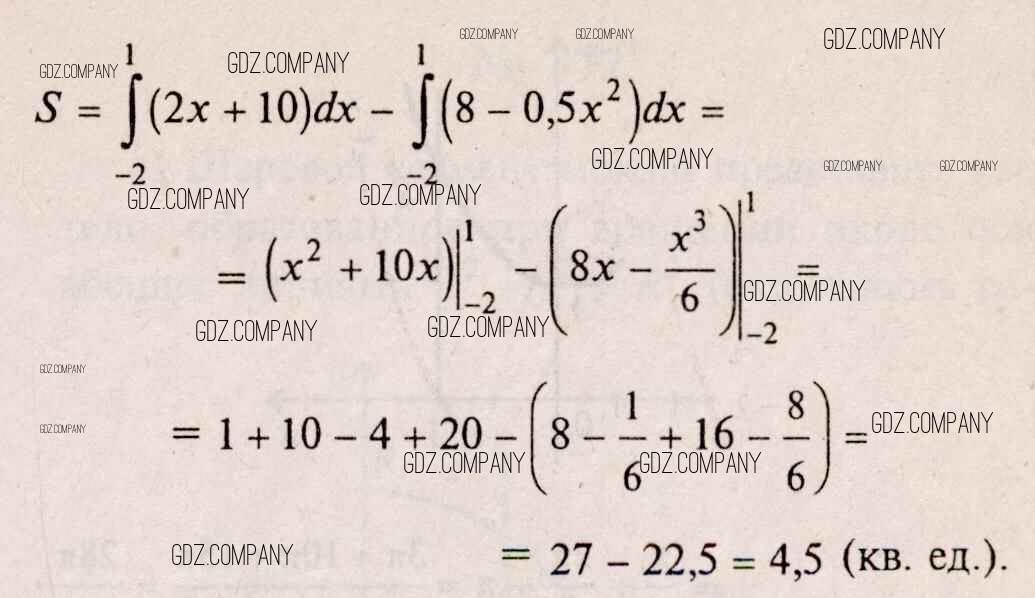 GDZ.COMPANY GDZ.COMPANY GDZ.COMPANY
GDZ.COMPANY GDZ.COMPANY
S = ∫₋₂¹ (2x + 10)dx − ∫₋₂¹ (8 − 0,5x²)dx =
GDZ.COMPANY GDZ.COMPANY GDZ.COMPANY
GDZ.COMPANY GDZ.COMPANY
= (x² + 10x)|₋₂¹ − (8x − x³/6)|₋₂¹ =
GDZ.COMPANY
GDZ.COMPANY GDZ.COMPANY
GDZ.COMPANY
= 1 + 10 − 4 + 20 − (8 − 1/6 + 16 − 8/6) =
GDZ.COMPANY GDZ.COMPANY
GDZ.COMPANY GDZ.COMPANY
= 27 − 22,5 = 4,5 (кв. ед.).
GDZ.COMPANY